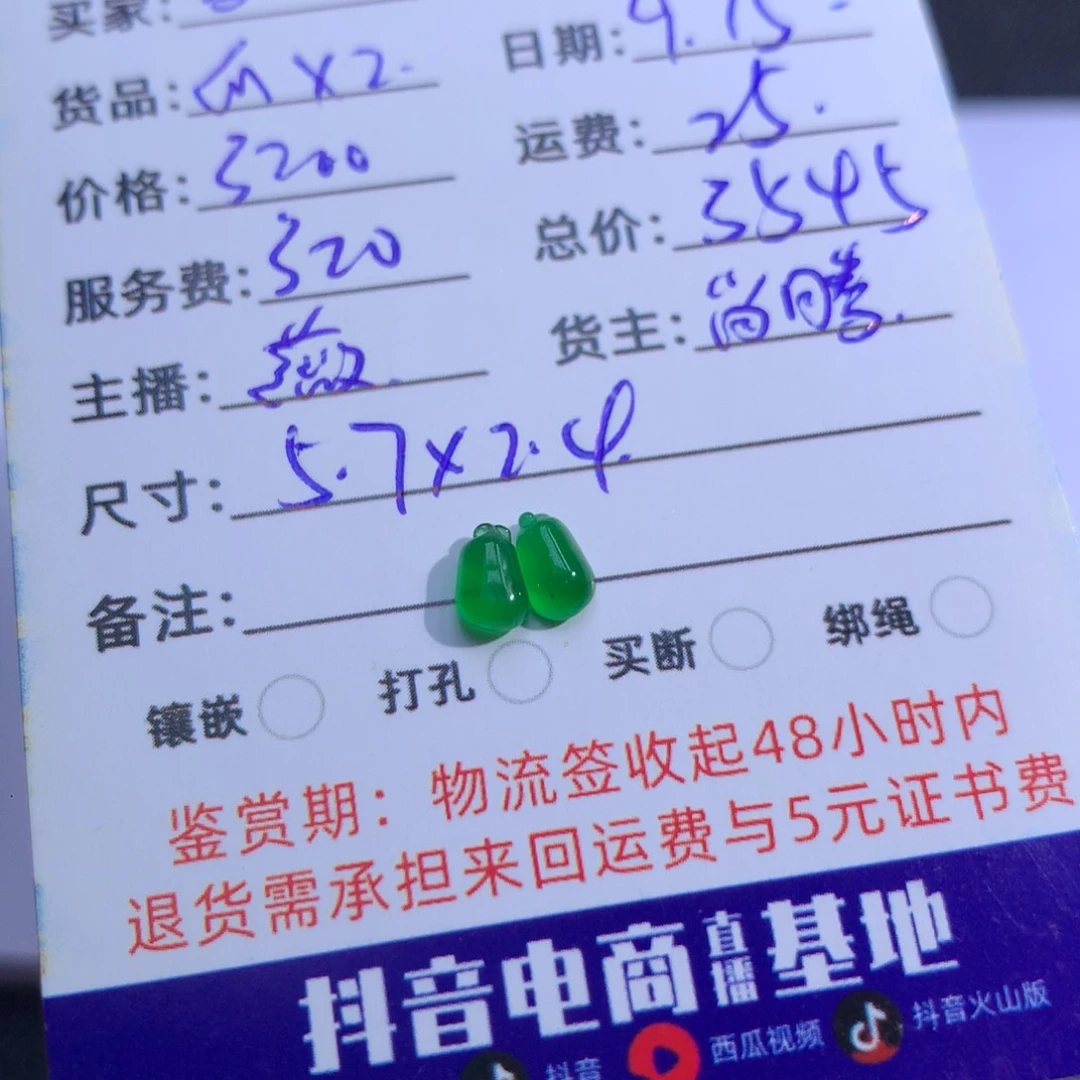 买家:
货品: 瓜 x 2. 日期: 9.15
价格: 3200 运费: 25.
服务费: 320 总价: 3545
主播: 薇. 货主: 尚腾.
尺寸: 5.7x2.4
备注:
镶嵌 打孔 买断 绑绳
鉴赏期：物流签收起48小时内
退货需承担来回运费与5元证书费
抖音电商直播基地
抖音 西瓜视频 抖音火山版